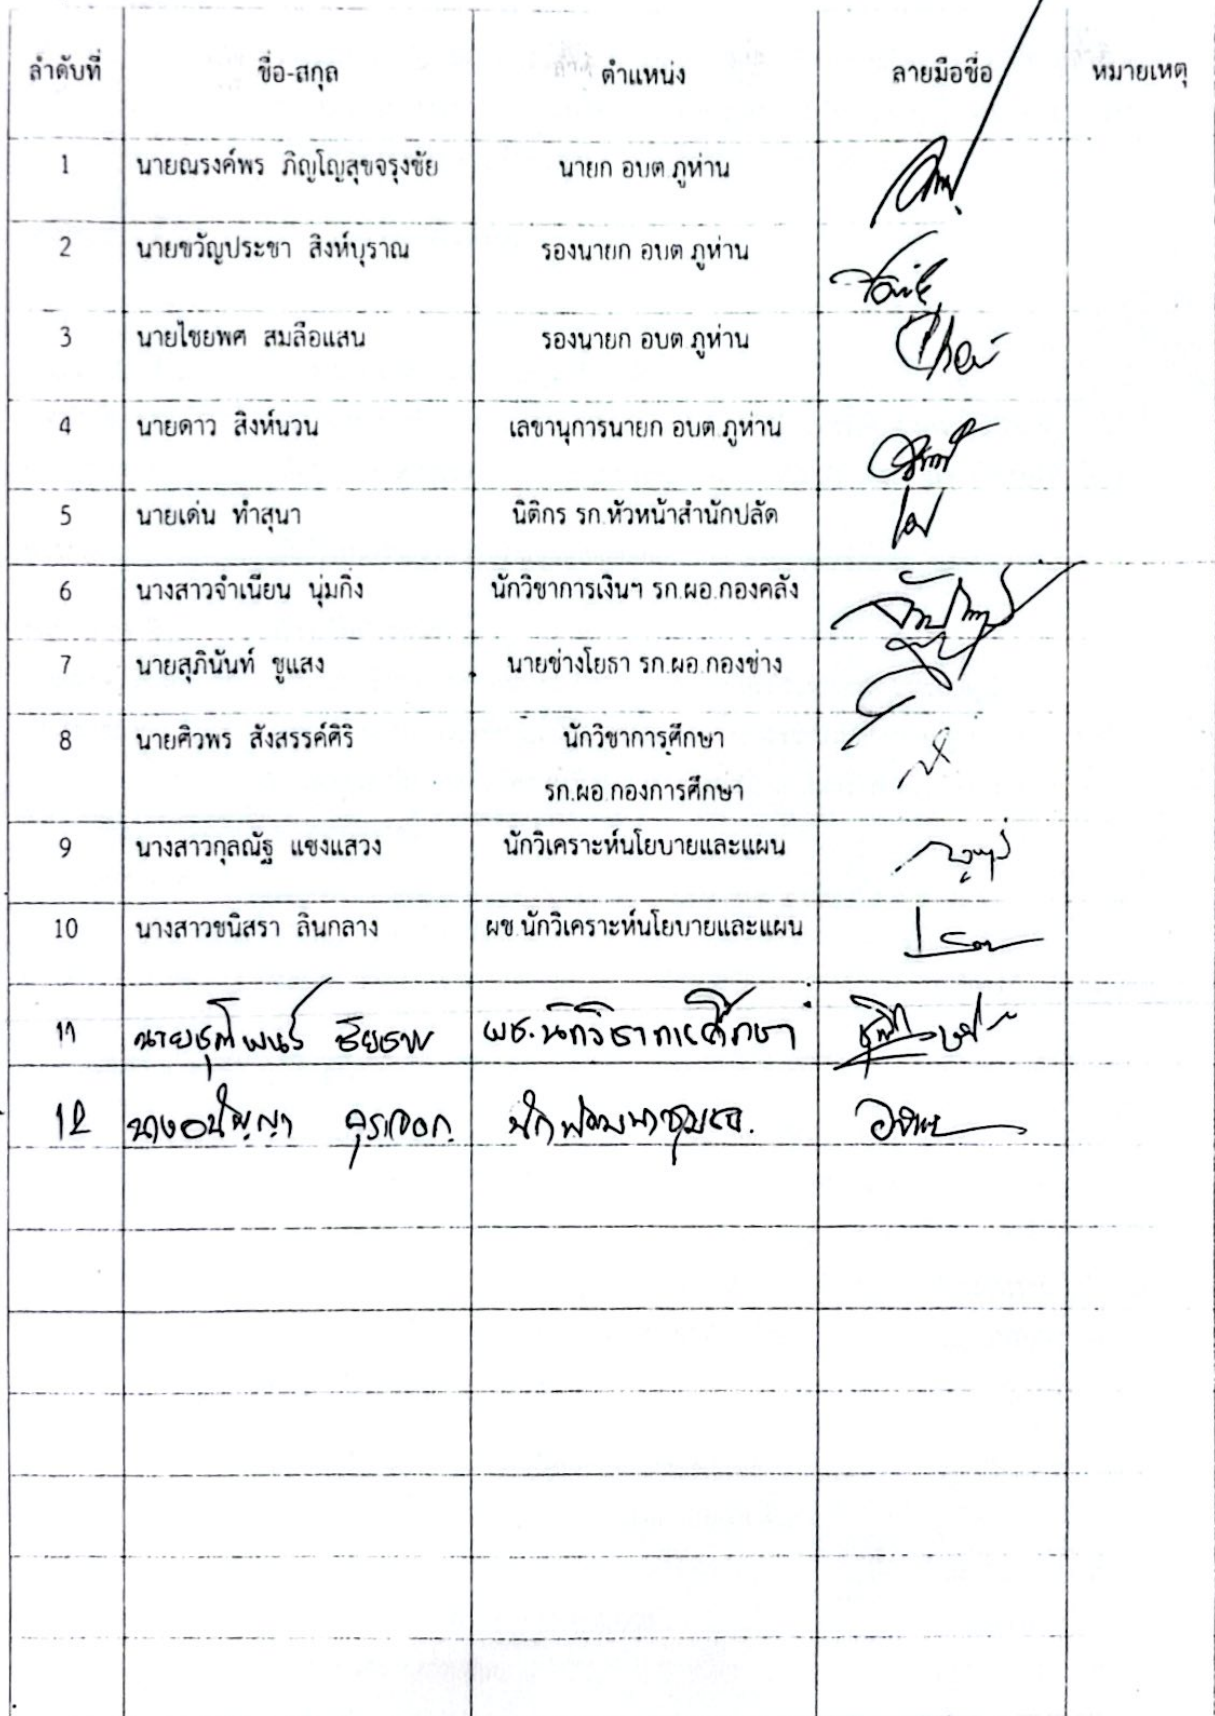 ลำดับที่ ชื่อ-สกุล ตำแหน่ง ลายมือชื่อ หมายเหตุ
1 นายณรงค์พร ภิญโญสุขจรุงชัย นายก อบต.ภูห่าน
2 นายขวัญประชา สิงห์บุราณ รองนายก อบต.ภูห่าน
3 นายไชยพศ สมลือแสน รองนายก อบต.ภูห่าน
4 นายดาว สิงห์นวน เลขานุการนายก อบต.ภูห่าน
5 นายเด่น ทำสุนา นิติกร รก.หัวหน้าสำนักปลัด
6 นางสาวจำเนียน นุ่มกิ่ง นักวิชาการเงินฯ รก.ผอ.กองคลัง
7 นายสุภินันท์ ชูแสง นายช่างโยธา รก.ผอ.กองช่าง
8 นายศิวพร สังสรรค์ศิริ นักวิชาการศึกษา
รก.ผอ.กองการศึกษา
9 นางสาวกุลณัฐ แซงแสวง นักวิเคราะห์นโยบายและแผน
10 นางสาวชนิสรา ลินกลาง ผช.นักวิเคราะห์นโยบายและแผน
11 ผช.นักวิชาการศึกษา
12 นักพัฒนาชุมชน